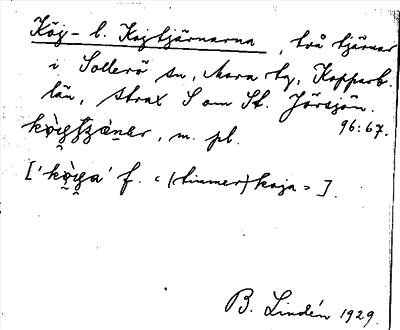 Köj- l. Kojtjärnarna, två tjärnar
i Sollerö sn, Mora tg, Kopparb.
län, strax S om St. Jörsjön.
96:67.
, m. pl.
[ f. "(timmer)koja" ].
B. Lindén 1929.